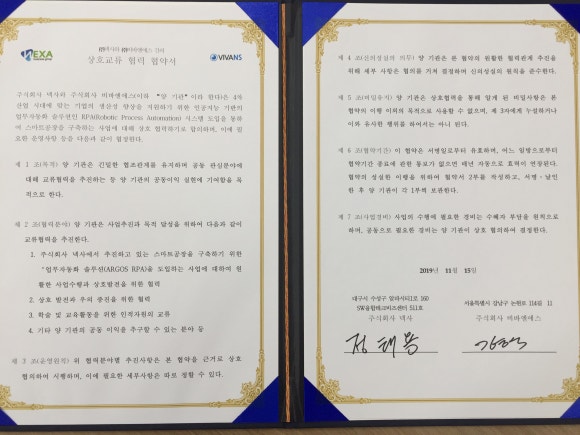 NEXA
VIVANS
㈜넥사와 ㈜비바엔에스 간의
상호교류 협력 협약서
주식회사 넥사와 주식회사 비바엔에스(이하 "양 기관"이라 한다)은 4차
산업 시대에 맞는 기업의 생산성 향상을 지원하기 위한 인공지능 기반의
업무자동화 솔루션인 RPA(Robotic Process Automation) 시스템 도입을 통하
여 스마트공장을 구축하는 사업에 대해 상호 협력하기로 합의하며, 이에 필
요한 운영사항 등을 다음과 같이 협정한다.
제 1 조(목적) 양 기관은 긴밀한 협조관계를 유지하며 공동 관심분야에
대해 교류협력을 추진하는 등 양 기관의 공동이익 실현에 기여함을 목
적으로 한다.
제 2 조(협력분야) 양 기관은 사업추진과 목적 달성을 위하여 다음과 같이
교류협력을 추진한다.
1. 주식회사 넥사에서 추진하고 있는 스마트공장을 구축하기 위한
"업무자동화 솔루션(ARGOS RPA)을 도입하는 사업에 대하여 원
활한 사업수행과 상호발전을 위한 협력
2. 상호 발전과 우의 증진을 위한 협력
3. 학술 및 교육활동을 위한 인적자원의 교류
4. 기타 양 기관의 공동 이익을 추구할 수 있는 분야 등
제 3 조(운영원칙) 위 협력분야별 추진사항은 본 협약을 근거로 상호
협의하여 시행하며, 이에 필요한 세부사항은 따로 정할 수 있다.
제 4 조(신의성실의 의무) 양 기관은 본 협약의 원활한 협력관계 추진을
위해 세부 사항은 협의를 거쳐 결정하며 신의성실의 원칙을 준수한다.
제 5 조(비밀유지) 양 기관은 상호협력을 통해 알게 된 비밀사항은 본
협약의 이행 이외의 목적으로 사용할 수 없으며, 제 3자에게 누설하거나
이와 유사한 행위를 하여서는 아니 된다.
제 6 조(협약기간) 이 협약은 서명일로부터 유효하며, 어느 일방으로부터
협약기간 종료에 관한 통보가 없으면 매년 자동으로 효력이 연장된다.
협약의 성실한 이행을 위하여 협약서 2부를 작성하고, 서명·날인
한 후 양 기관이 각 1부씩 보관한다.
제 7 조(사업경비) 사업의 수행에 필요한 경비는 수혜자 부담을 원칙으로
하며, 공동으로 필요한 경비는 양 기관이 상호 협의하여 결정한다.
2019년 11월 15일
대구시 수성구 알파시티1로 160
SW융합테크비즈센터 511호
주식회사 넥사
서울특별시 강남구 논현로 114길 11
주식회사 비바엔에스
정태용